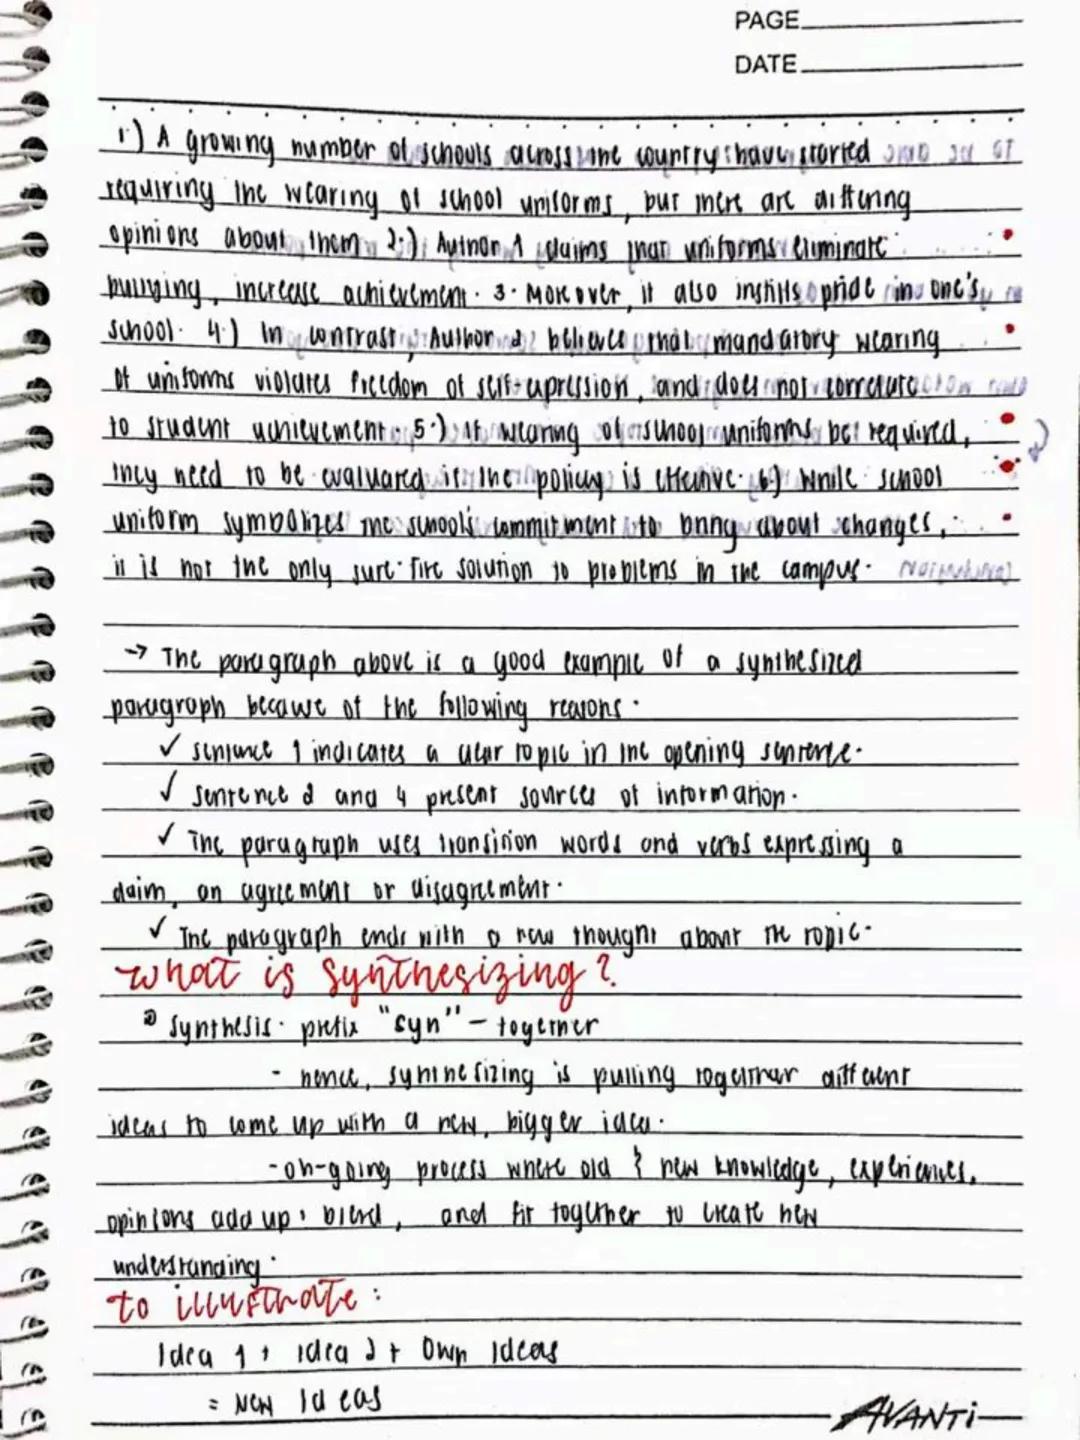 PAGE
DATE
1.) A growing number of schools across the country have started
requiring the wearing of school uniforms, but there are differing
opinions about them 2.) Author 1 claims that uniforms eliminate
bullying, increase achievement. 3. Moreover, it also instills pride in one's
school. 4.) In contrast, Author 2 believes that mandatory wearing
of uniforms violates freedom of self-expression, and does not correlate
to student achievement. 5.) If wearing of school uniforms be required,
they need to be evaluated if the policy is effective. 6.) While school
uniform symbolizes the school's commitment to bring about changes,
it is not the only sure-fire solution to problems in the campus.
→ The paragraph above is a good example of a synthesized
paragraph because of the following reasons.
✓ sentence 1 indicates a clear topic in the opening sentence.
✓ sentence 2 and 4 present sources of information.
✓ The paragraph uses transition words and verbs expressing a
claim, an agreement or disagreement.
✓ The paragraph ends with a new thought about the topic.
What is Synthesizing?
Synthesis. prefix "syn" - together
- hence, synthesizing is pulling together different
ideas to come up with a new, bigger idea.
-on-going process where old & new knowledge, experiences,
opinions add up, blend, and fit together to create new
understanding.
to illustrate:
Idea 1 + idea 2 + Own Ideas
= New Ideas
AVANTi